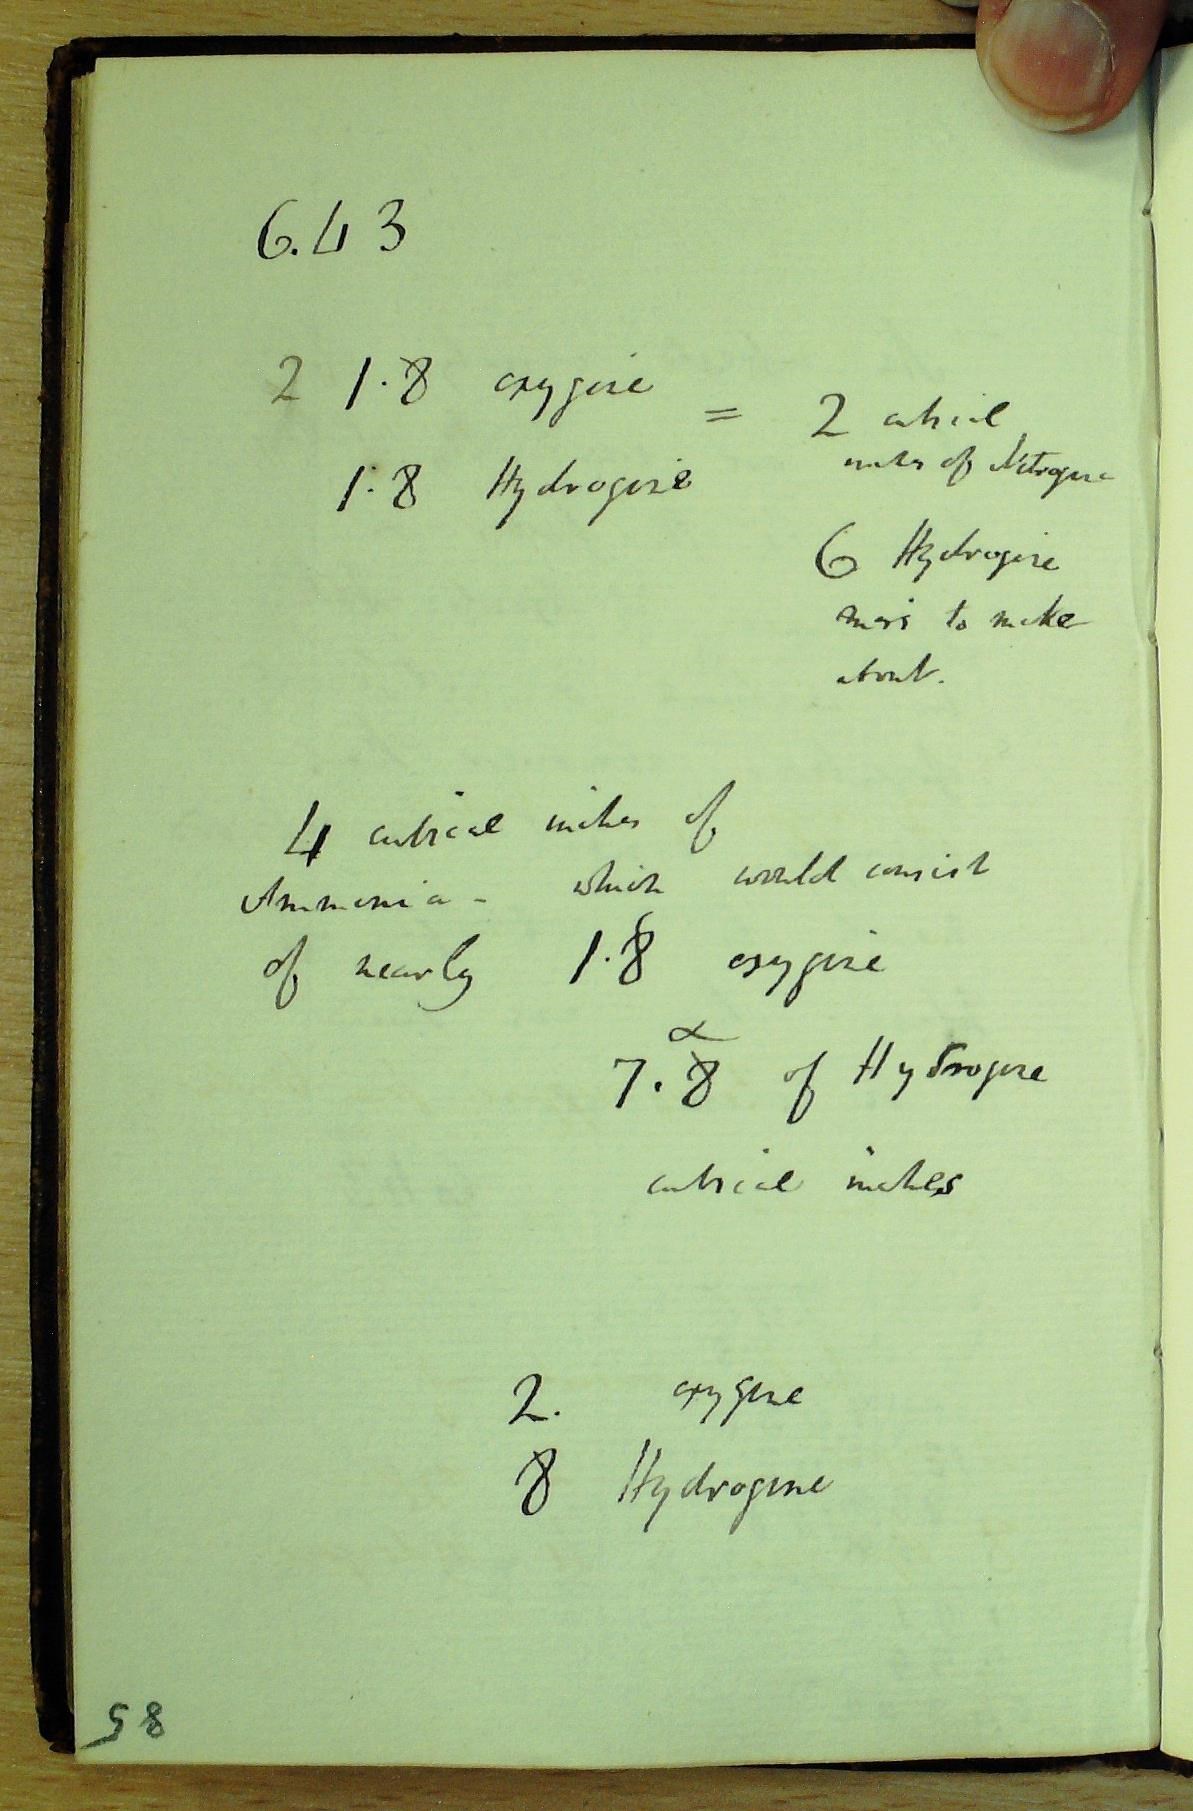 6.43
2 1.8 oxygene
1.8 Hydrogene
= 2 cubical
inches of Nitrogene
6 Hydrogene
to make
about.
4 cubical inches of
Ammonia - which would consist
of nearly 1.8 oxygene
7.8 of Hydrogene
cubical inches
2. oxygene
8 Hydrogene
58